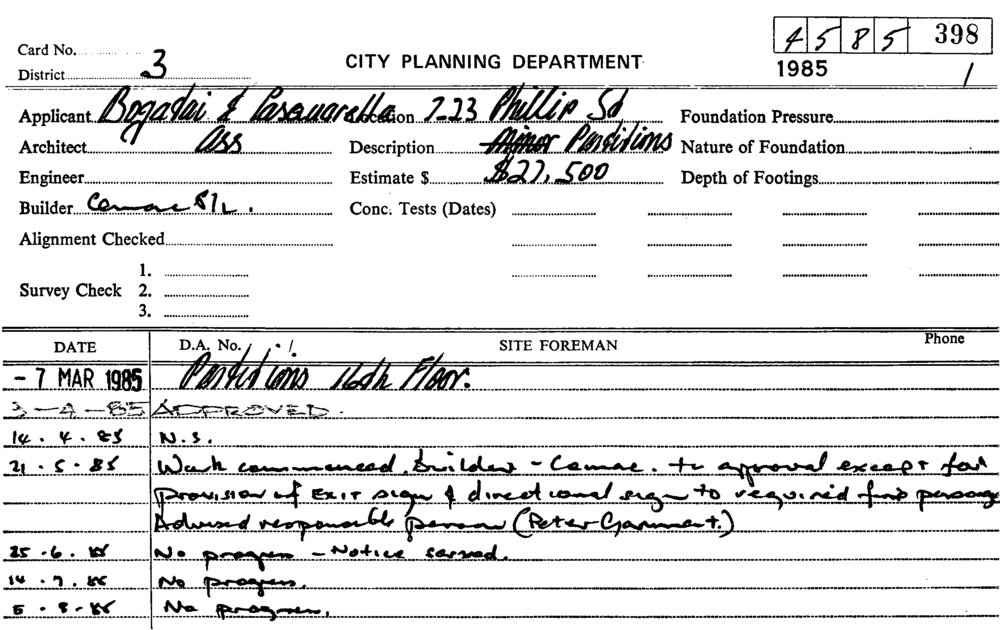 4 5 8 5 398
Card No.
CITY PLANNING DEPARTMENT
District 3
1985 1
Applicant Bogadai & Pasquarella Location 7-23 Phillip St Foundation Pressure
Architect Ass Description Minor Partitions Nature of Foundation
Engineer Estimate $ $27,500 Depth of Footings
Builder Camac P/L. Conc. Tests (Dates)
Alignment Checked
1.
Survey Check 2.
3.
DATE D.A. No. / . /. SITE FOREMAN Phone
- 7 MAR 1985 Partitions 16th Floor.
3 - 4 - 85 APPROVED.
14 . 4 . 85 N.S.
21 . 5 . 85 Work commenced. builder - Camac. to approval except for
provision of EXIT sign & directional sign to required fire passage
Advised responsible person (Peter Garment.)
25 . 6 . 85 No progress - Notice served.
14 . 7 . 85 No progress.
5 . 8 . 85 No progress.